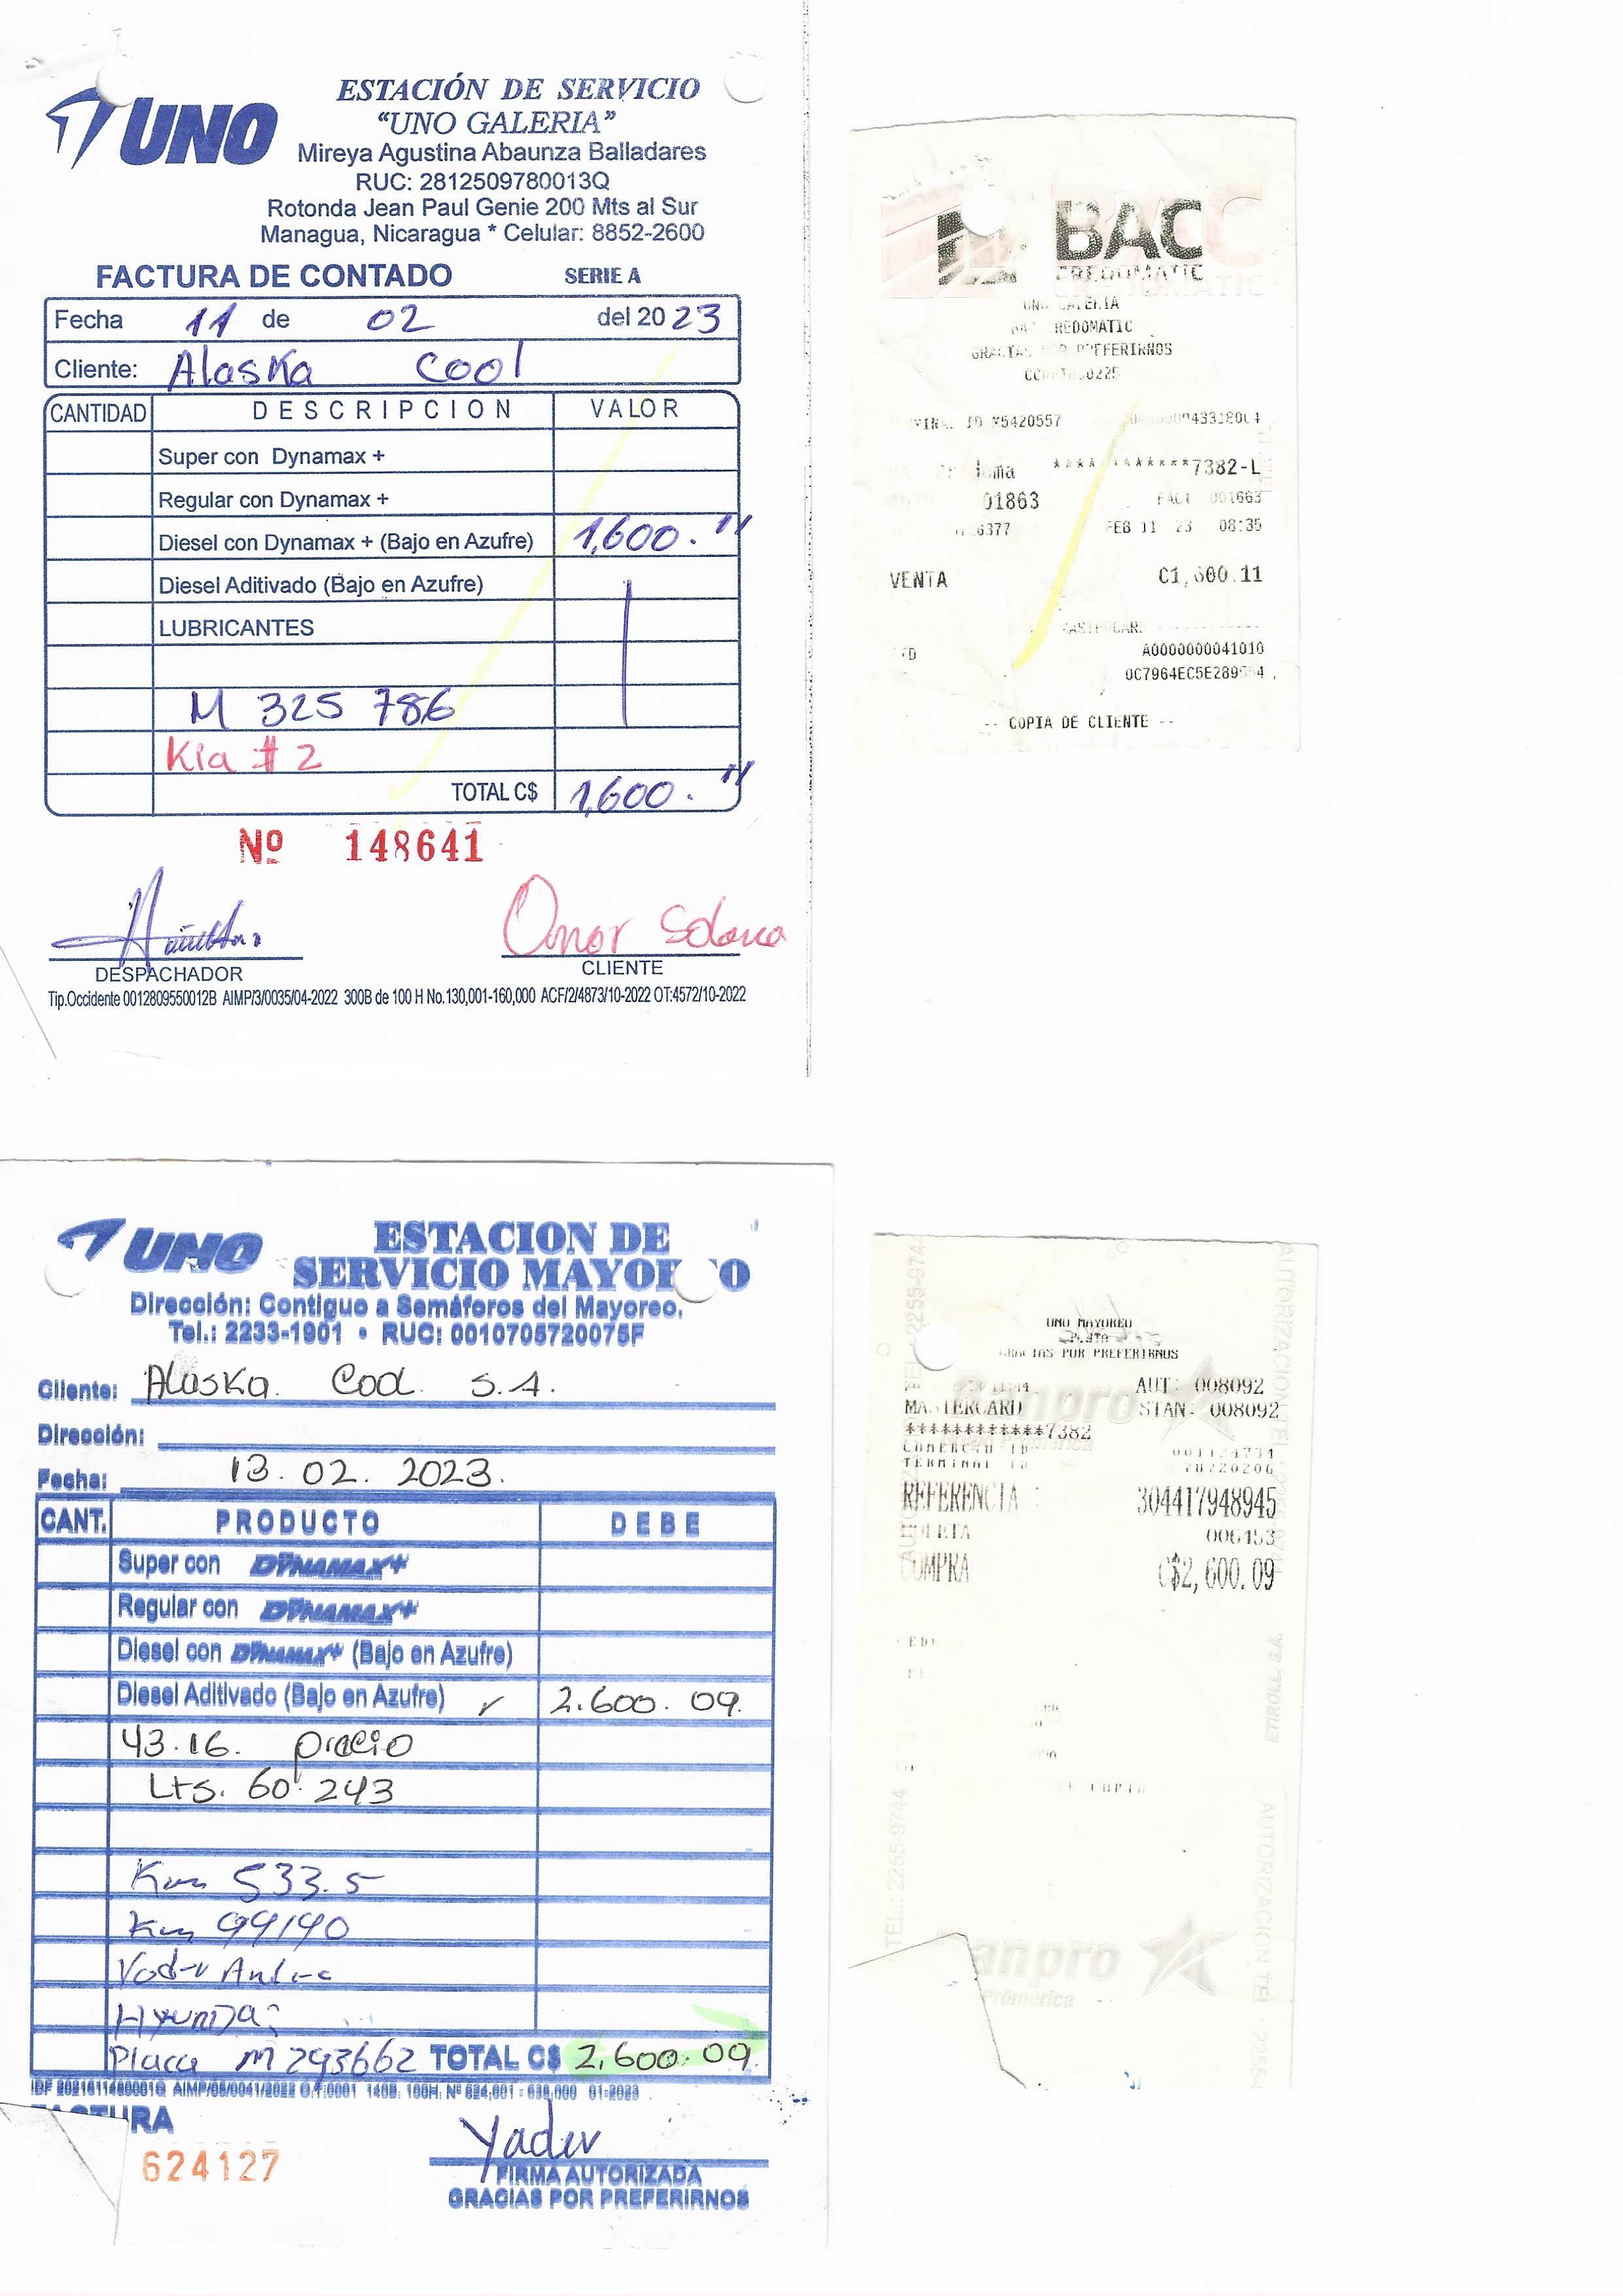 UNO
ESTACIÓN DE SERVICIO
"UNO GALERIA"
Mireya Agustina Abaunza Balladares
RUC: 2812509780013Q
Rotonda Jean Paul Genie 200 Mts al Sur
Managua, Nicaragua * Celular: 8852-2600
FACTURA DE CONTADO SERIE A
Fecha 11 de 02 del 2023
Cliente: Alaska Cool
CANTIDAD DESCRIPCION VALOR
Super con Dynamax +
Regular con Dynamax +
Diesel con Dynamax + (Bajo en Azufre) 1,600. 11
Diesel Aditivado (Bajo en Azufre)
LUBRICANTES
M 325 786
Kia # 2
TOTAL C$ 1,600. 11
Nº 148641
DESPACHADOR
CLIENTE
Tip.Occidente 0012809550012B AIMP/3/0035/04-2022 300B de 100 H No.130,001-160,000 ACF/2/4873/10-2022 OT:4572/10-2022
BAC
CREDOMATIC
UNO GALERIA
REDOMATIC
GRACIAS POR PREFERIRNOS
ID M5420557
7382-L
01863 FACT 001663
6377 FEB 11 23 08:35
VENTA C1,600.11
A0000000041010
-- COPIA DE CLIENTE --
UNO
ESTACION DE
SERVICIO MAYOREO
Dirección: Contiguo a Semáforos del Mayoreo.
Tel.: 2233-1901 • RUC: 0010705720075F
Cliente: Alaska Cool S.A.
Dirección:
Fecha: 13. 02. 2023.
CANT. PRODUCTO DEBE
Super con DYNAMAX+
Regular con DYNAMAX+
Diesel con DYNAMAX+ (Bajo en Azufre)
Diesel Aditivado (Bajo en Azufre) ✓ 2.600. 09.
43.16. precio
Lts. 60.243
Km 533.5
Km 99190
Hyundai
Placa M 293662 TOTAL C$ 2,600.09.
FACTURA
624127
Yader
FIRMA AUTORIZADA
GRACIAS POR PREFERIRNOS
UNO MAYOREO
PISTA
GRACIAS POR PREFERIRNOS
AUT: 008092
MASTERCARD STAN: 008092
************7382
COMERCIO ID
TERMINAL ID 78720206
REFERENCIA : 304417948945
BOLETA 006453
COMPRA C$2,600.09
Banpro
Promerica